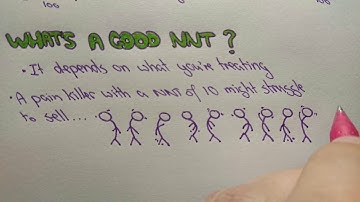 WHATS A GOOD NNT ?
• It depends on what you're treating
• A pain killer with a NNT of 10 might struggle
to sell...